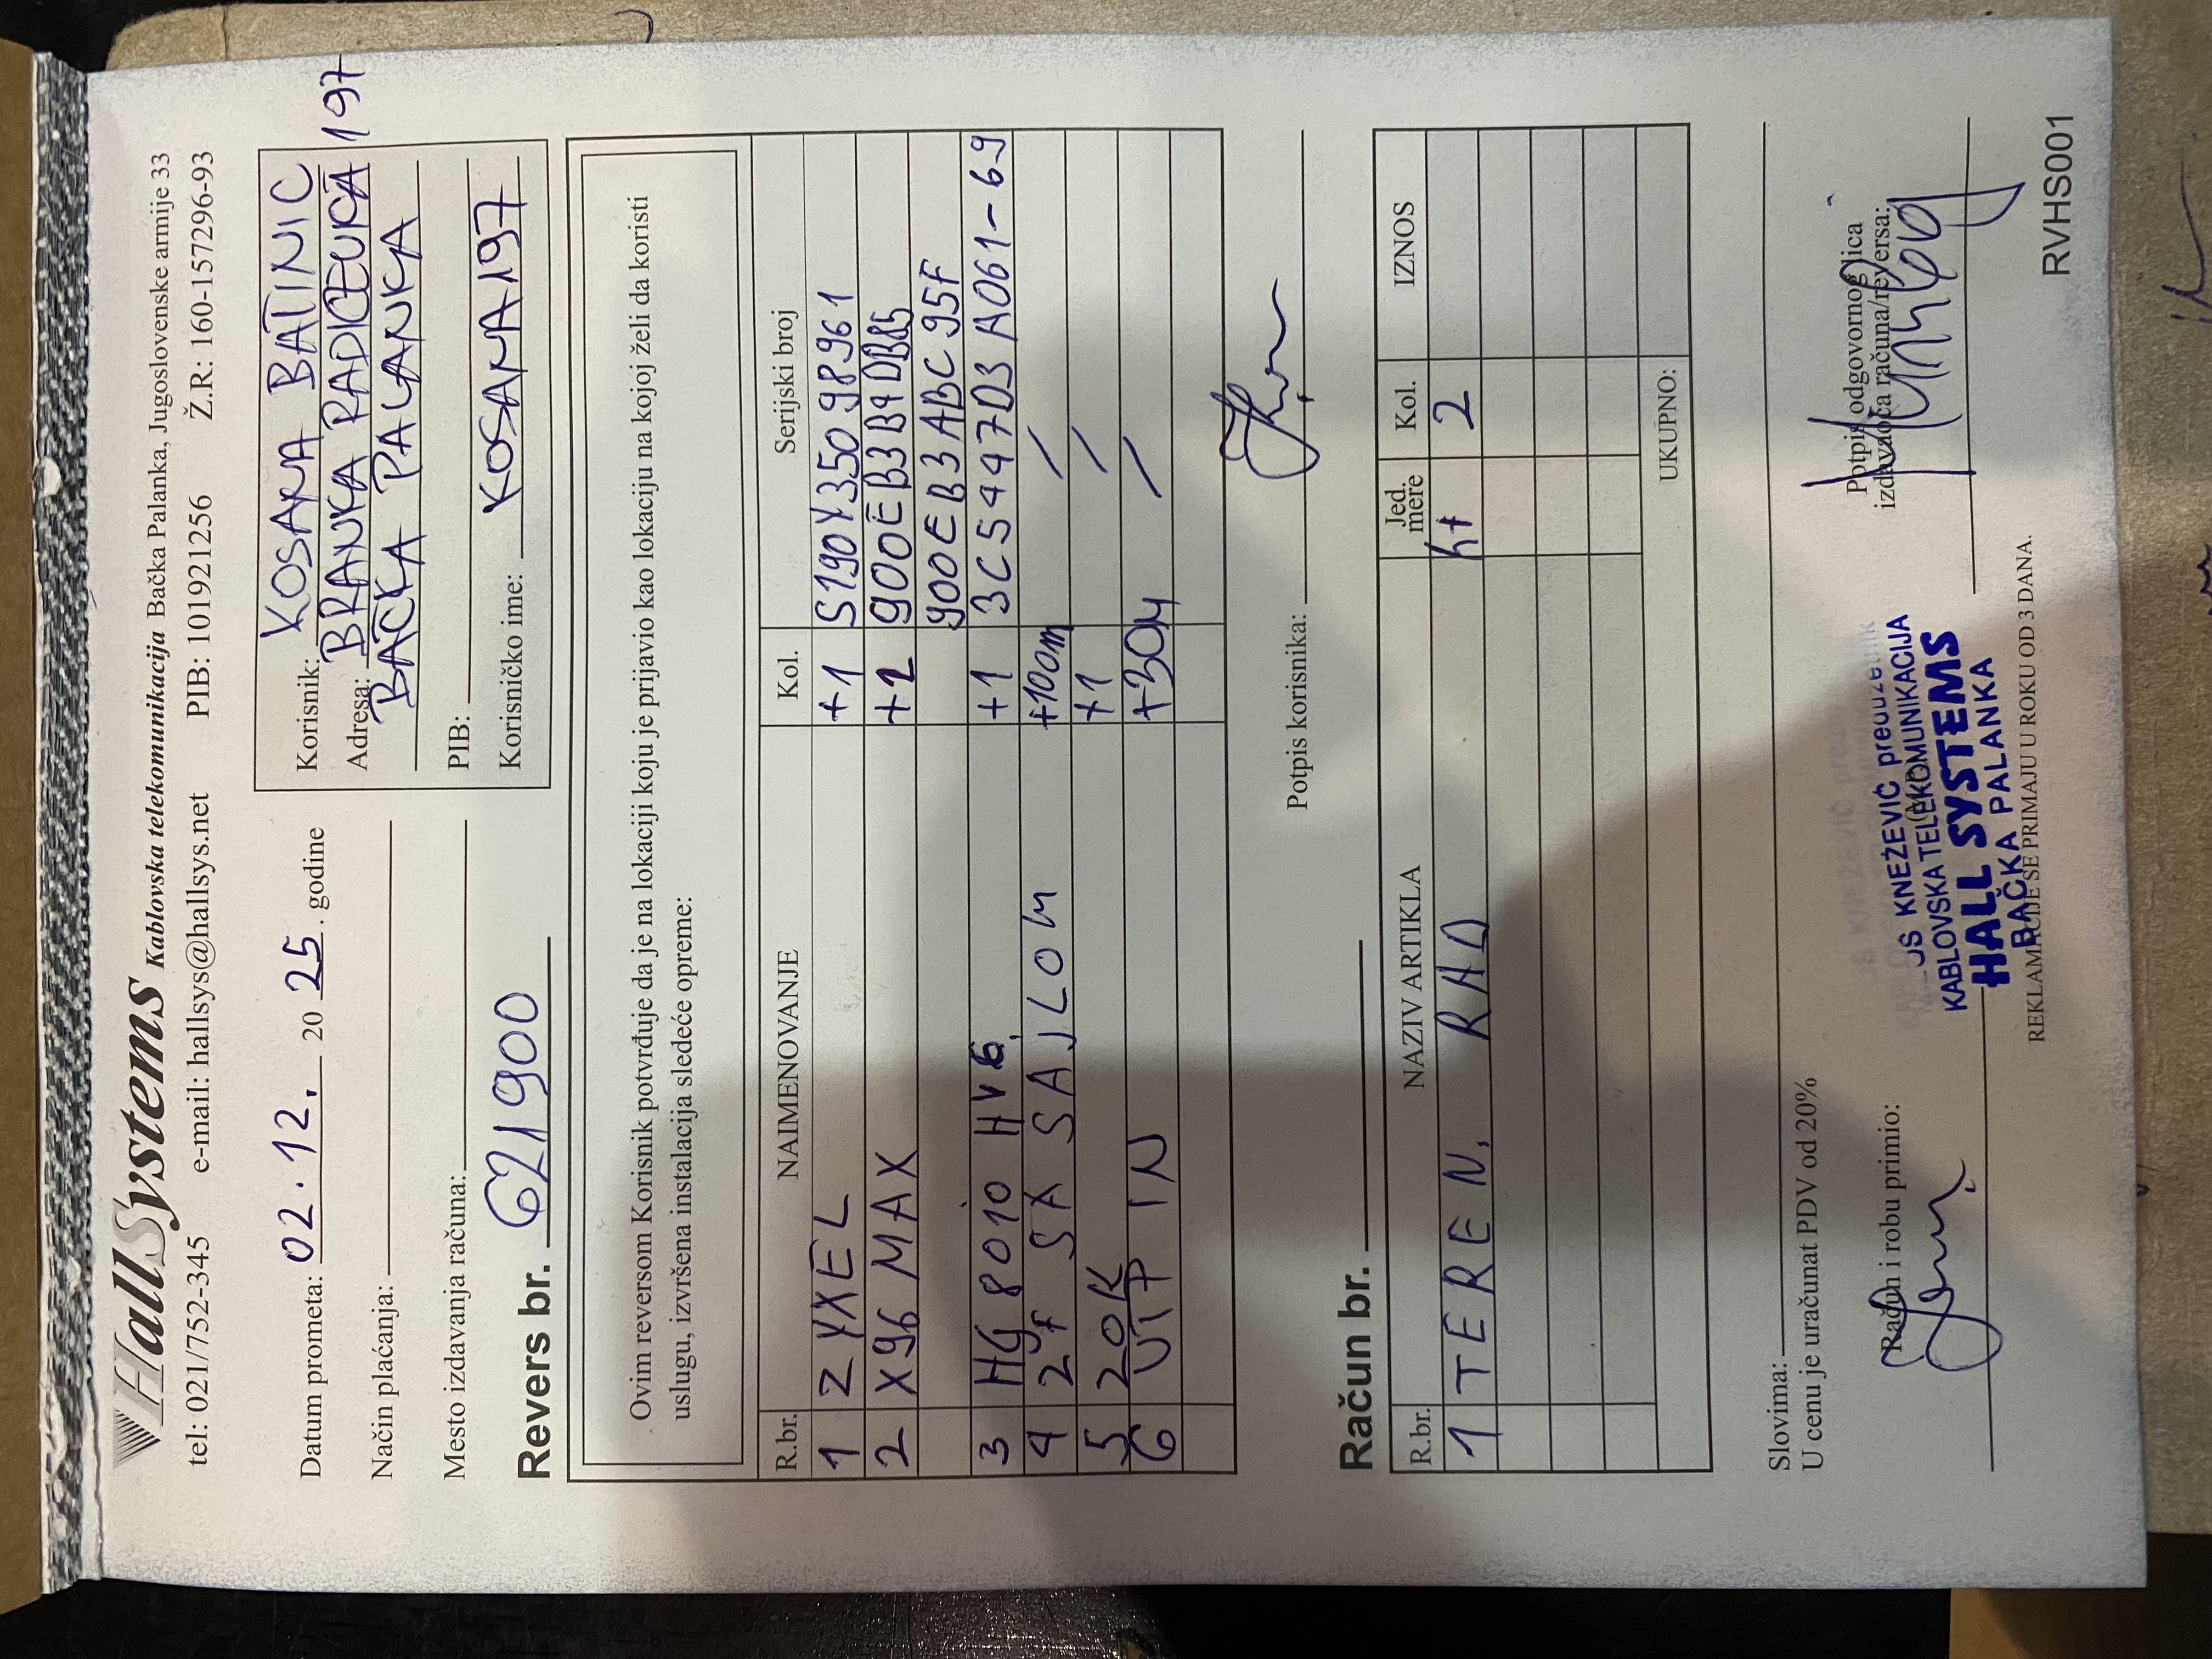 HallSystems Kablovska telekomunikacija Bačka Palanka, Jugoslovenske armije 33
tel: 021/752-345 e-mail: hallsys@hallsys.net PIB: 101921256 Ž.R.: 160-157296-93
Datum prometa: 02.12. 20 25. godine
Način plaćanja:
Mesto izdavanja računa:
Korisnik: KOSANA BATINIC
Adresa: BRANKA RADICEVIĆA 197
BAČKA PALANKA
PIB:
Korisničko ime: KOSANA197
Revers br. 621900
Ovim reversom Korisnik potvrđuje da je na lokaciji koju je prijavio kao lokaciju na kojoj želi da koristi
uslugu, izvršena instalacija sledeće opreme:
R.br. NAIMENOVANJE Kol. Serijski broj
1 ZYXEL +1 S190Y35098961
2 X96 MAX +2 900EB3B4DB85
900EB3ABC95F
3 HG 8010 HV6 +1 3C5447D3A061-69
4 2F SA SAJLOM +100m /
5 ZOK +1 /
6 UTP IN +30M /
Potpis korisnika:
Račun br.
R.br. NAZIV ARTIKLA Jed. mere Kol. IZNOS
1 TEREN. RAD h+ 2
UKUPNO:
Slovima:
U cenu je uračunat PDV od 20%
Račun i robu primio:
Potpis odgovornog lica
izdavaoca računa/reversa:
KNEŽEVIĆ preduzetnik
KABLOVSKA TELEKOMUNIKACIJA
HALL SYSTEMS
BAČKA PALANKA
REKLAMACIJE SE PRIMAJU U ROKU OD 3 DANA.
RVHS001